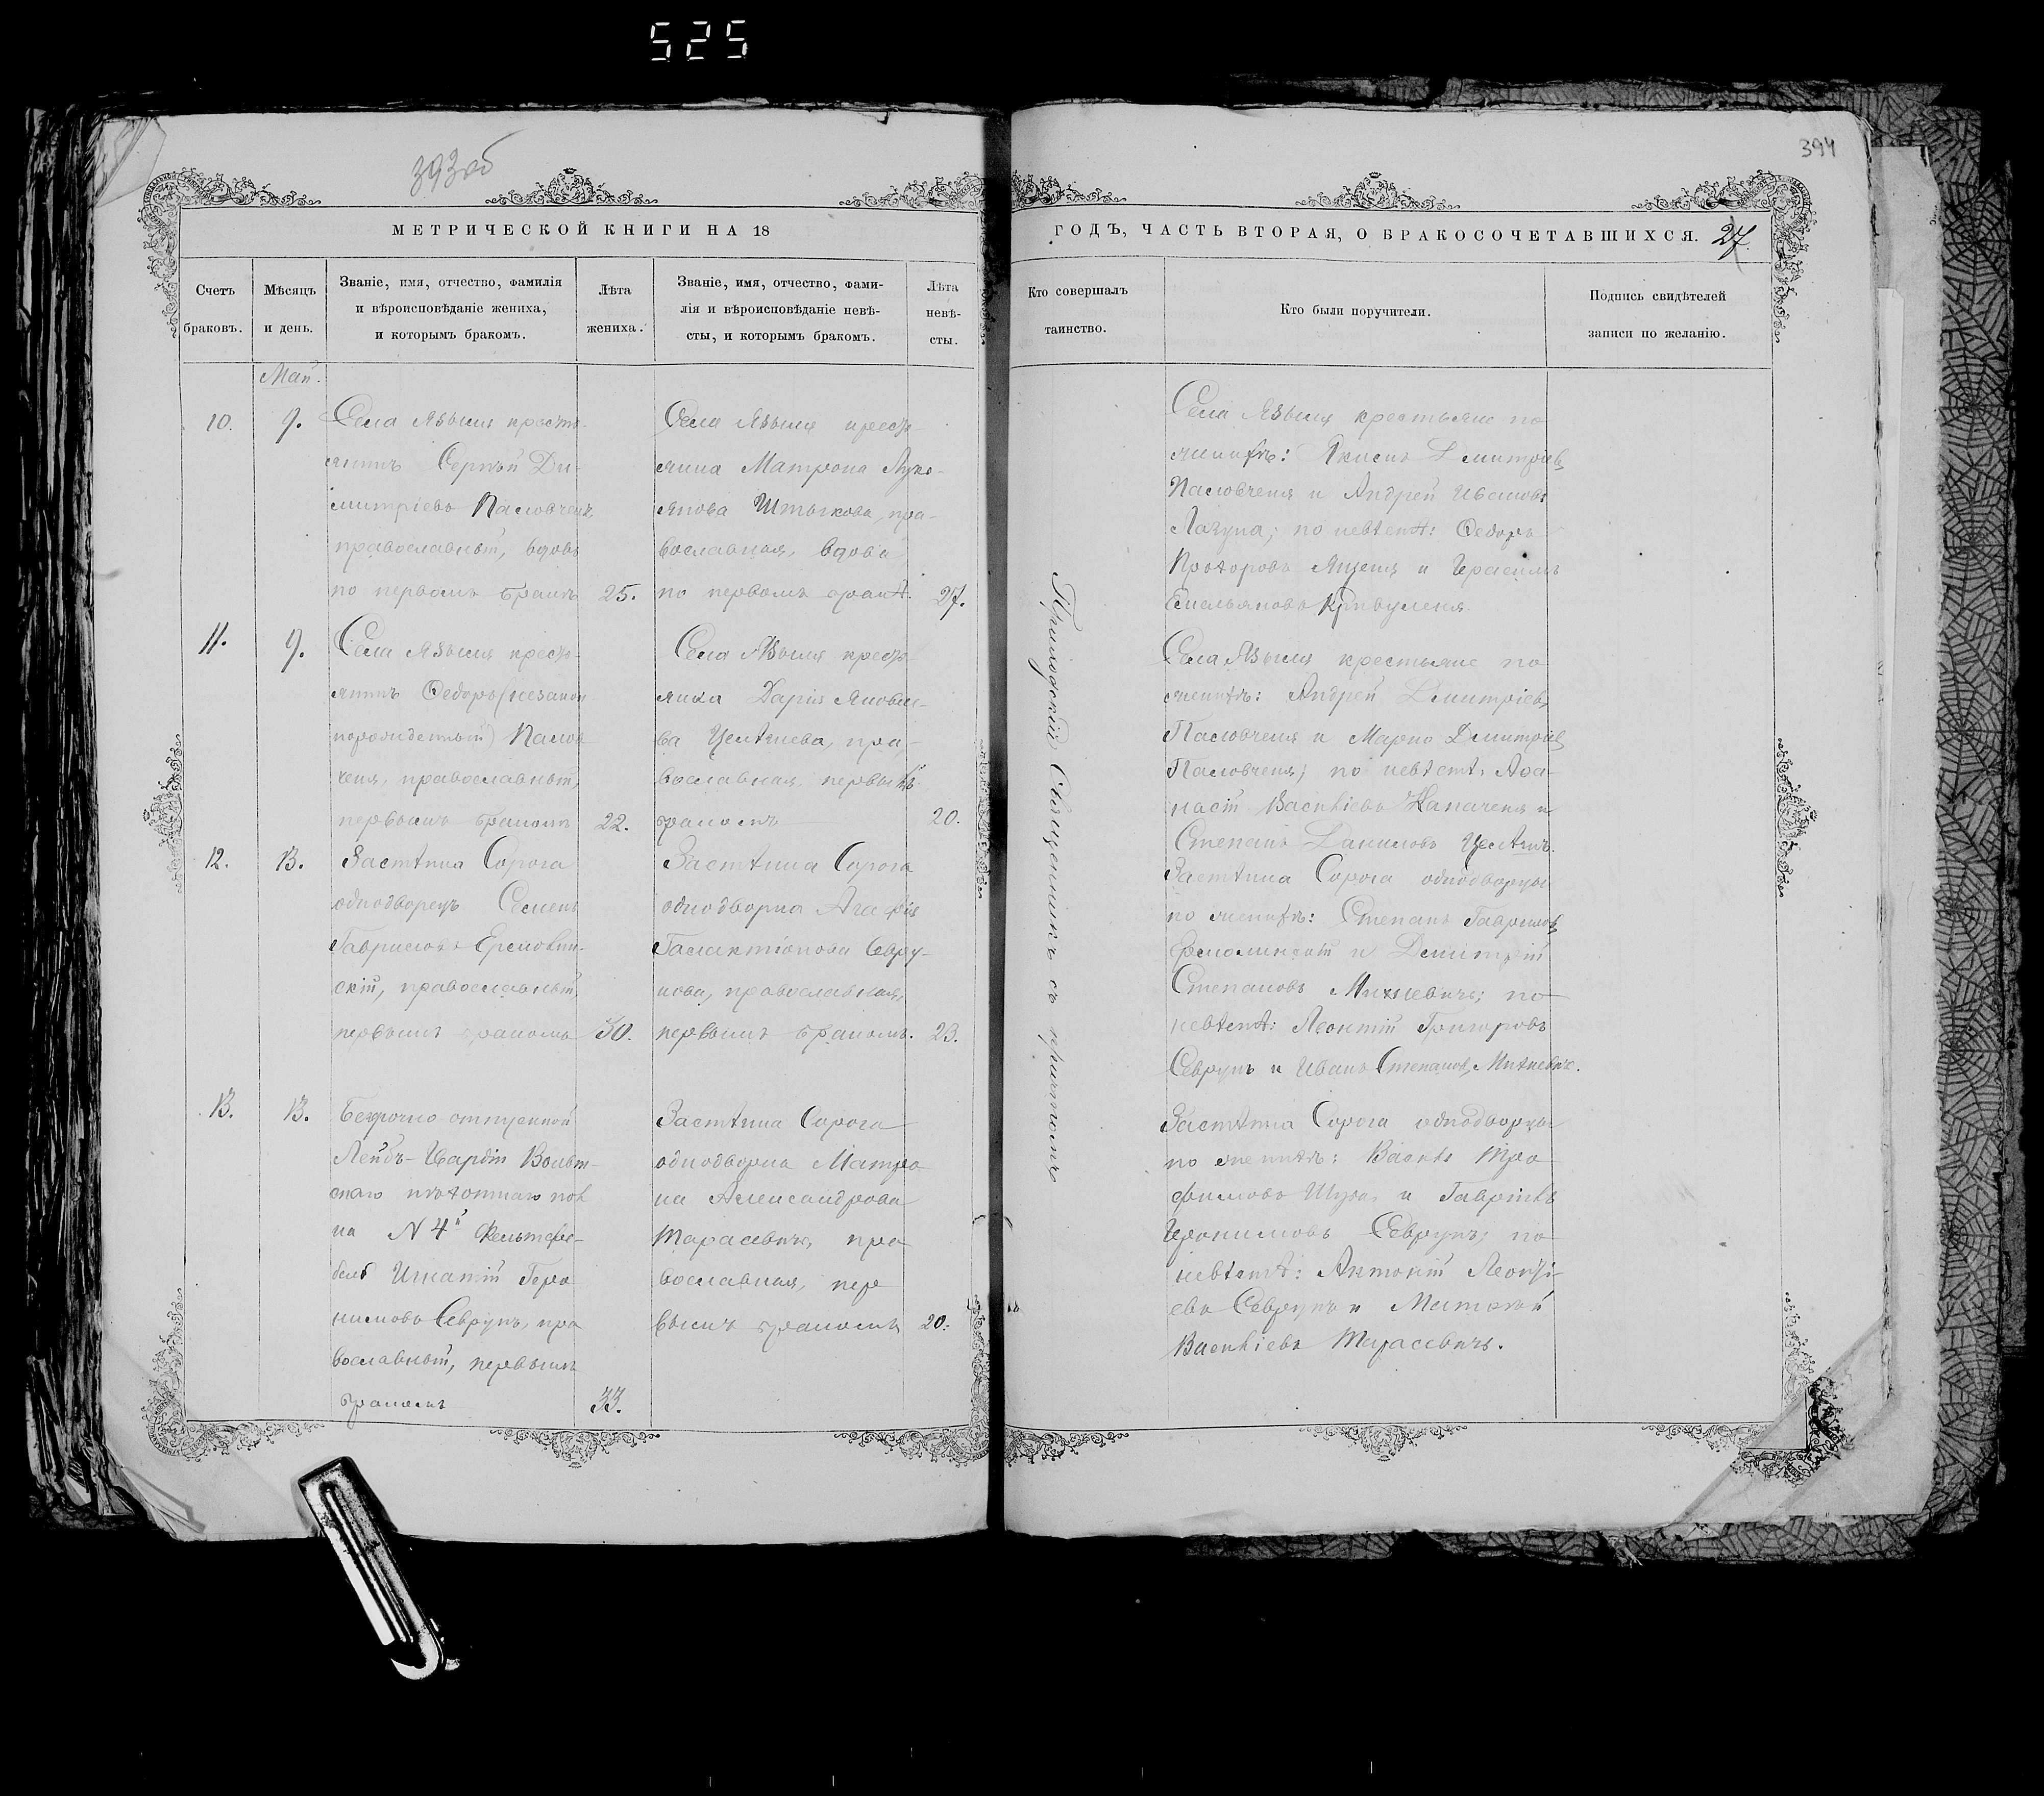 525
393об
394
МЕТРИЧЕСКОЙ КНИГИ НА 18
ГОДЪ, ЧАСТЬ ВТОРАЯ, О БРАКОСОЧЕТАВШИХСЯ. 27.
Счетъ браковъ.
Мѣсяцъ и день.
Званіе, имя, отчество, фамилія
и вѣроисповѣданіе жениха,
и которымъ бракомъ.
Лѣта жениха.
Званіе, имя, отчество, фами-
лія и вѣроисповѣданіе невѣ-
сты, и которымъ бракомъ.
Лѣта невѣ-
сты.
Кто совершалъ
таинство.
Кто были поручители.
Подпись свидѣтелей
записи по желанію.
Май.
10. 9.
Села Язвыля кресть-
янинъ Сергѣй Ди-
митріевъ
православный, вдовъ
по первомъ бракѣ 25.
Села Язвыля крест
янка Матрона Луко-
янова Штыкова, пра-
вославная, вдова
по первомъ бракѣ. 27.
Села Язвыля крестьяне по
женихѣ: Дмитріевъ
и Андрей Ивановъ
по невѣстѣ: Федоръ
Прохоровъ и Герасимъ
Емельяновъ
11. 9.
Села Язвыля кресть-
янинъ Федоръ (незакон
порожденный)
православный,
первымъ бракомъ 22.
Села Язвыля кресть-
янка Дарія Яковле-
ва пра-
вославная, первымъ
бракомъ 20.
Села Язвыля крестьяне по
женихѣ: Андрей Дмитріевъ
и Марко Дмитріев
по невѣстѣ: Афа-
насій Васильевъ и
Степанъ Даниловъ
12. 13.
Застѣнка Сорога
однодворецъ Семенъ
Гавриловъ Ермолин-
скій, православный,
первымъ бракомъ 30.
Застѣнка Сорога
однодворка Агафія
Галактіонова Севру-
кова, православная,
первымъ бракомъ. 23.
Застѣнка Сорога однодворцы
по женихѣ: Степанъ Гавриловъ
Ермолинскій и Димитрій
Степановъ Михневичъ; по
невѣстѣ: Леонтій Григоровъ
Севрукъ и Иванъ Степановъ Михневичъ.
13. 13.
Безсрочно отпускной
Лейбъ-Гвардіи Волын-
скаго пѣхотнаго пол
ка N 4й Фельтфе-
бель Игнатій Геро
нимовъ Севрукъ, пра
вославный, первымъ
бракомъ 33.
Застѣнка Сорога
однодворка Матро
на Александрова
Тарасевичъ, пра
вославная, пер
вымъ бракомъ 20.
Застѣнка Сорога однодворцы
по женихѣ: Василій Тро
фимовъ и Гавріилъ
Іеронимовъ Севрукъ; по
невѣстѣ: Антоній Леонті-
евъ Севрукъ и Матѳей
Васильевъ Тарасевичъ.
Приходскій Священникъ съ причтомъ